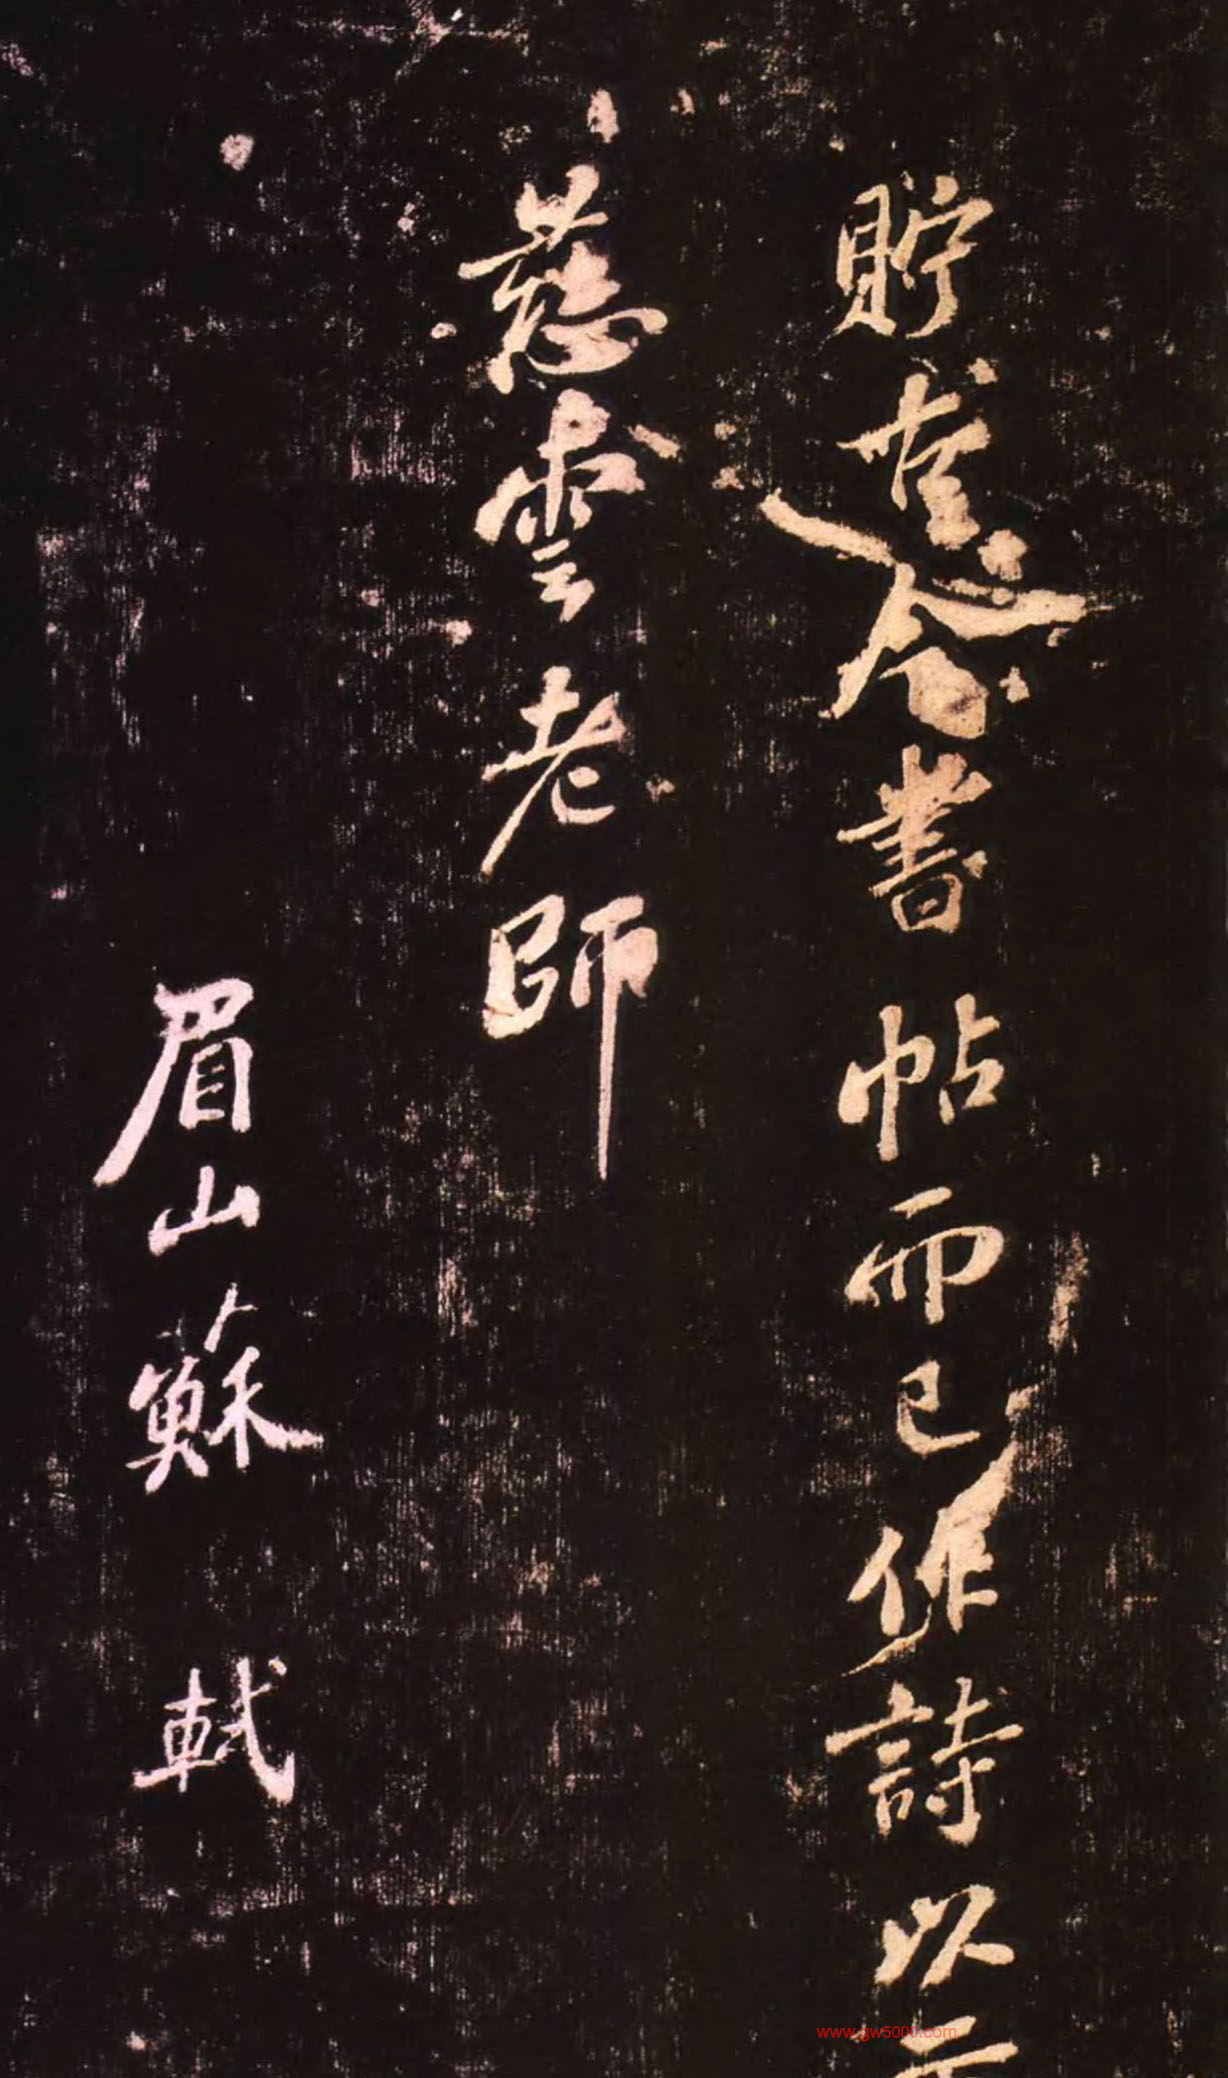 貯書帖而已作詩以示
慈雲老師
眉山蘇軾
www.gw5000.com